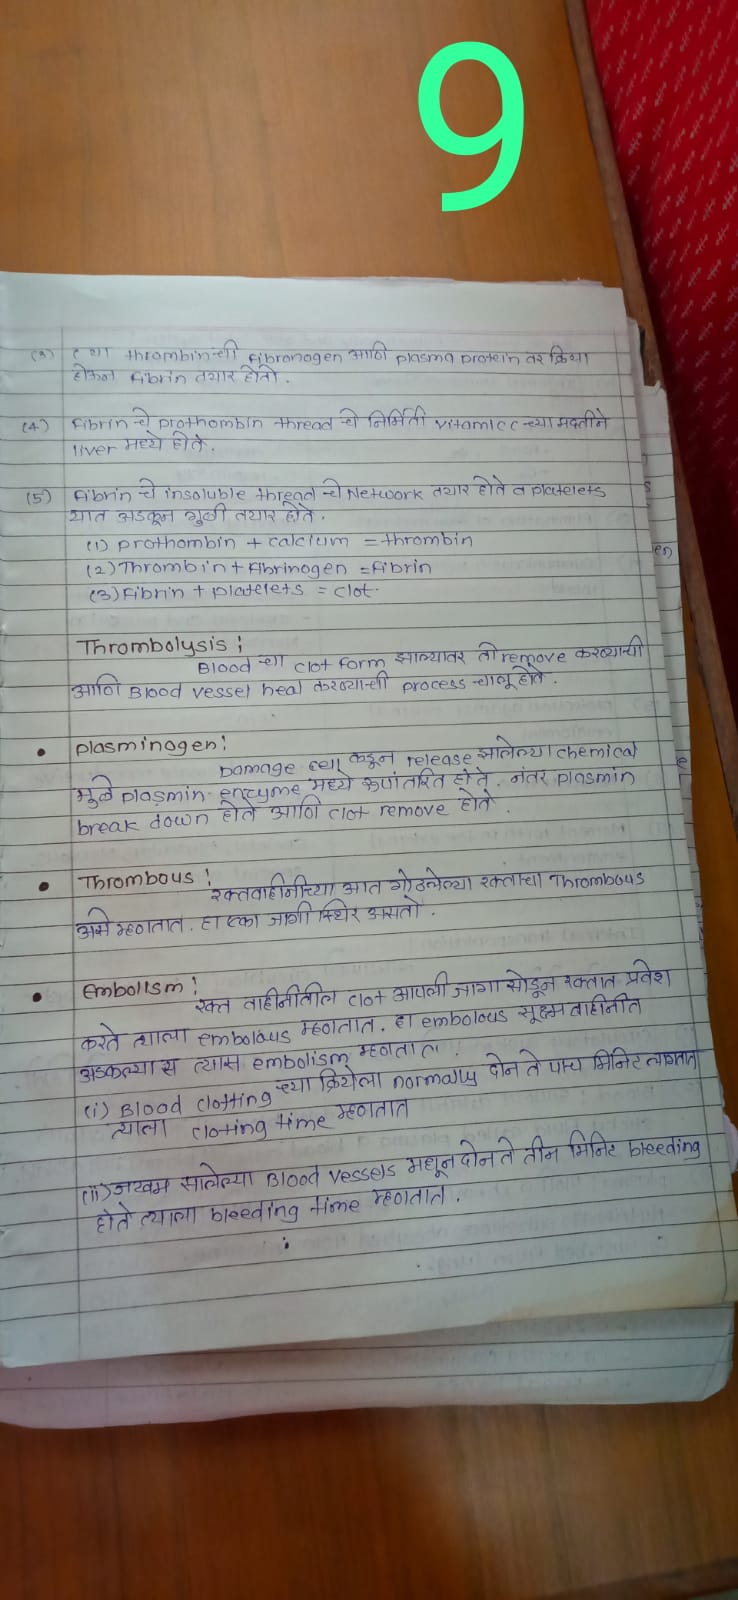 9
(3) ह्या thrombinची fibronogen आणि plasma protein वर क्रिया
होऊन fibrin तयार होतो.
(4) fibrin चे prothombin thread चे निर्मिती vitamicc च्या मदतीने
liver मध्ये होते.
(5) fibrin चे insoluble thread चे Network तयार होते व platelets
यात अडकून गुठळी तयार होते.
(1) prothombin + calcium = thrombin
(2) Thrombin + fibrinogen = fibrin
(3) fibrin + platelets = clot.
Thrombolysis :
Blood चा clot form झाल्यावर तो remove करण्याची
आणि Blood vessel heal करण्याची process चालू होते.
• plasminogen :
Damage cell कडून release झालेल्या chemical
मुळे plasmin enzyme मध्ये रूपांतरित होते. नंतर plasmin
break down होते आणि clot remove होते.
• Thrombous :
रक्तवाहीनीच्या आत गोठलेल्या रक्ताचा Thrombous
असे म्हणतात. हा एका जागी स्थिर असतो.
• Embolism :
रक्त वाहीनीतील clot आपली जागा सोडून रक्तात प्रवेश
करते त्याला embolous म्हणतात. हा embolous सूक्ष्म वाहीनीत
अडकल्या स त्यास embolism म्हणतात.
(i) Blood clotting च्या क्रियेला normally दोन ते पाच मिनिट लागतात
त्याला cloting time म्हणतात
(ii) जखम झालेल्या Blood vessels मधून दोन ते तीन मिनिट bleeding
होते त्याला bleeding time म्हणतात.